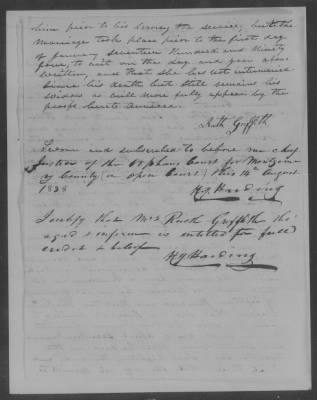 him prior to his leaving the service, but the
marriage took place prior to the first day
of January, seventeen hundred and ninety
four, to wit on the day and year above
written, and that she has not intermarried
since his death but still remains his
widow as will more fully appear by the
proofs hereto annexed.
Ruth Griffith
Sworn and subscribed to before me chief
Justice of the Orphans Court for Montgome
ry County (in open Court) this 14th August
1838
H Harding
I certify that Mrs Ruth Griffith tho'
aged & infirm is entitled to full
credit & belief
H Harding